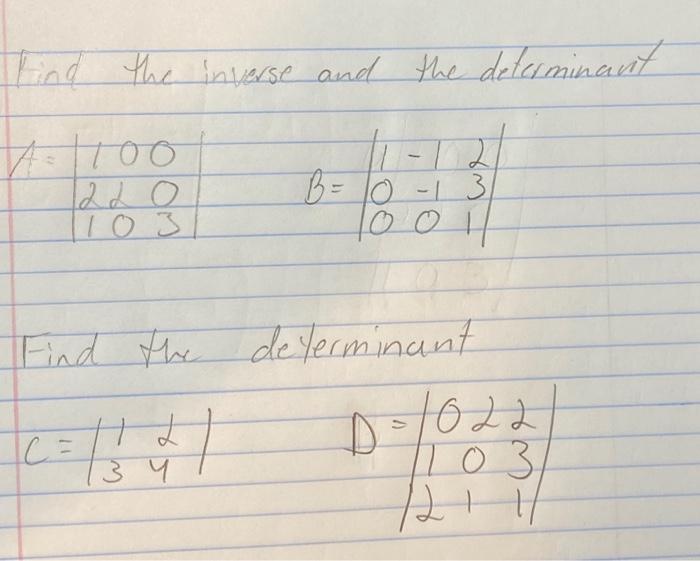 Find the inverse and the determinant
A = |1 0 0| B = |1 -1 2|
|2 2 0| |0 -1 3|
|1 0 3| |0 0 1|
Find the determinant
C = |1 2| D = |0 2 2|
|3 4| |1 0 3|
|2 1 1|